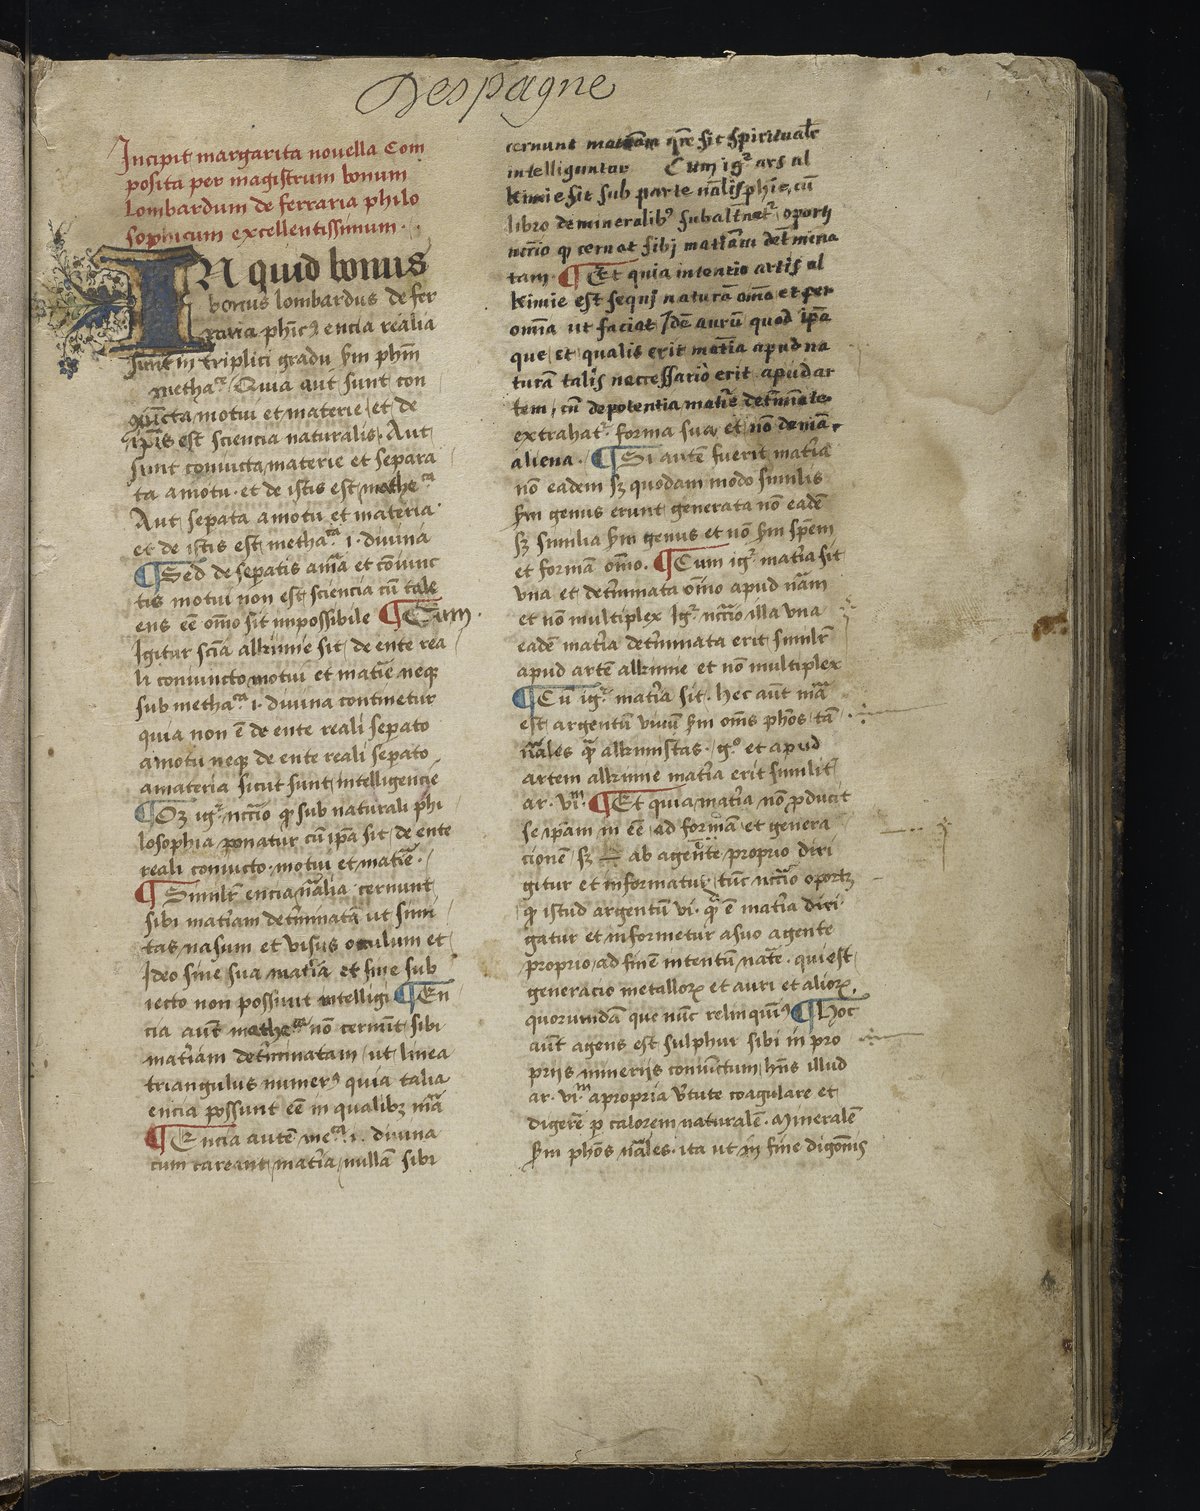 Despagne
Incipit margarita nouella Com
posita per magistrum bonum
lombardum de ferraria philo
sophicum excellentissimum.
IN quid bonus
bonus lombardus de fer
raria phic⁹ encia realia
sunt in triplici gradu ẜm phm̄
metha. Quia aut sunt con
motui et materie et de
ip̄is est sciencia naturalis. Aut
sunt coniucta materie et separa
ta a motu. et de istis est mathe ca
Aut sepata a motu et materia
et de istis est metha ca .i. diuina
¶ Sed de sepatis a mā et coniunc
tis motui non est sciencia cū tale
ens eē om̄o sit impossibile ¶ Cum
Igitur scīa alkimie sit de ente rea
li coniuncto motui et matīe neqꝫ
sub metha ca .i. diuina continetur
quia non ē de ente reali sepato
a motu neqꝫ de ente reali sepato
a materia sicut sunt intelligencie
¶ Oꝫ igr̄ nccīo ꝙ sub naturali phi
losophia ponatur cū ip̄a sit de ente
reali coniucto motui et matīe.
¶ Similr̄ encia nālia cernunt
sibi matīam detminatā ut simi
tas nasum et visus oculum et
Ideo sine sua matīa et sine sub
iecto non possunt intelligi ¶ En
cia aūt mathe ca nō cernūt sibi
matīam detminatam ut linea
triangulus numer⁹ quia talia
encia possunt eē in qualibꝫ mā
¶ Encia autē me ca .i. diuina
cum careant matīa nullā sibi
cernunt matīam qr̄e sit spiritualr̄
intelliguntur Cum igr̄ ars al
kimie sit sub parte nālis phie, cū
libro de mineralibꝫ subaltnetr̄, oportꝫ
nccīo ꝙ cernat sibj matīam detmina
tam. ¶ Et quia intentio artis al
kimie est sequj naturā om̄o et per
omīa ut faciat Idē aurū quod ip̄a
que et qualis erit matīa apud na
turā talis neccessario erit apud ar
tem, cū de potentia matīe detminate
extrahatr̄ forma sua et nō de mā
aliena. ¶ Si autē fuerit matīa
nō eadem sꝫ quodam modo similis
ẜm genus erunt generata nō eadē
sꝫ similia ẜm genus et nō ẜm sp̄em
et formā om̄o. ¶ Cum igr̄ matīa sit
vna et detminata om̄o apud nām
et nō multiplex Igr̄ nccīo illa vna
eadē matīa detminata erit similr̄
apud artē alkimie et nō multiplex
¶ Cū igr̄ matīa sit. hec aūt mā
est argentū viuū ẜm om̄s phos tā
nāles ꝙ alkimistas. gº et apud
artem alkimie matīa erit similit
ar. vi m. ¶ Et quia matīa nō ꝓducit
se ip̄am in eē ad formā et genera
cionē sꝫ ab agente proprio diri
gitur et informatur, tūc nccīo oportꝫ
ꝙ istud argentū vi. ē matīa diri
gatur et informetur a suo agente
proprio, ad finē intentū nāte. qui est
generacio metalloꝝ et auri et alioꝝ,
quorumdā que nūc relinquūt⁹ ¶ Hoc
aūt agens est sulphur sibi in pro
priis minerijs coniūctum hn̄s illud
ar. vi m a propria v̄tute coagulare et
digerē ꝑ calorem naturalē. mineralē
ẜm phos nāles. ita ut in fine